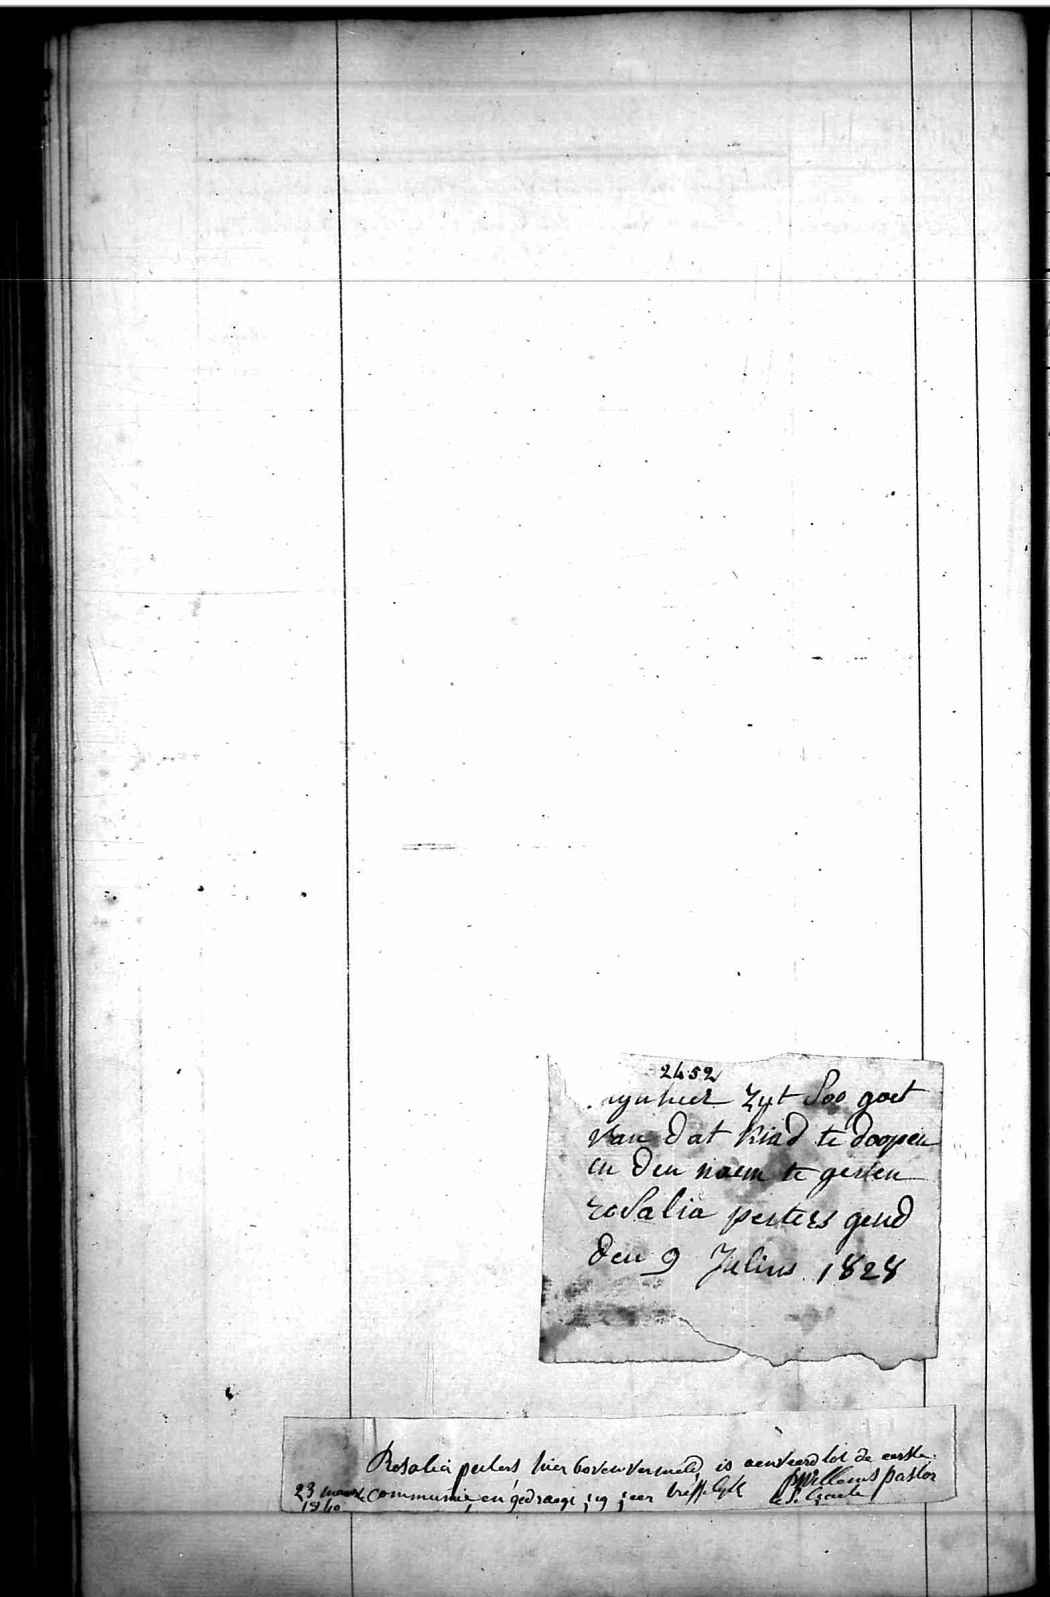 2452
ynheer zyt Soo goet
van dat kind te doopen
en den naem te gesten
roSalia peeters gend
den 9 Julius 1828
Rosalia peeters hier boven vermeld is aenveerd tot de eerste
23 maert communie, en gedraegt zig zeer treff.lyk Willems pastor
1840